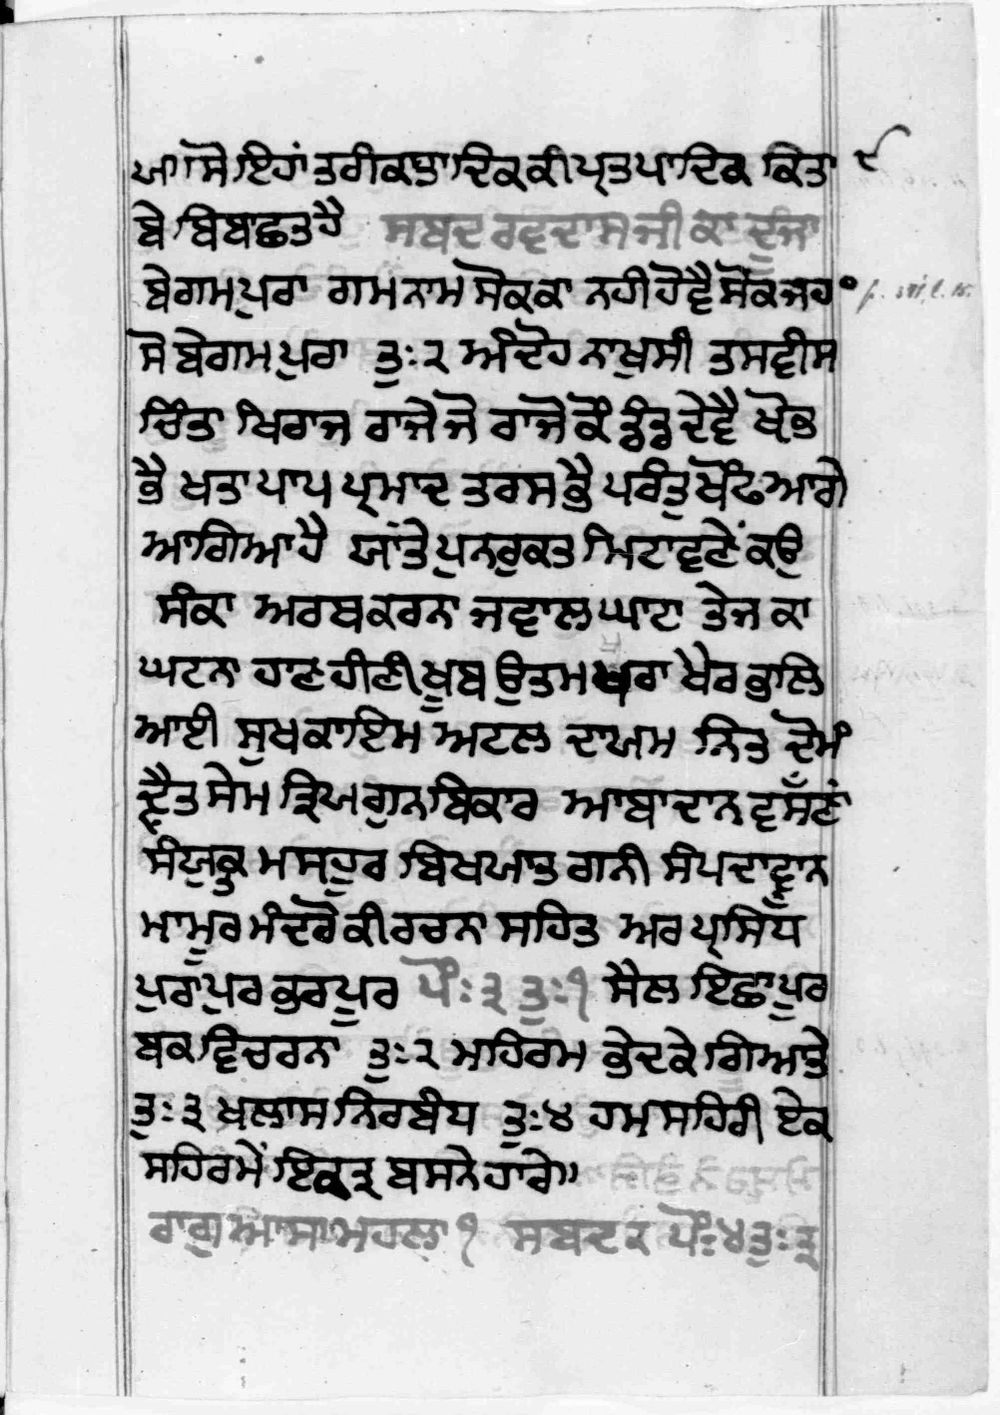 ਯਾ ਸੋ ਇਹਾਂ ਤਰੀਕਤਾਦਿਕ ਕੀ ਪ੍ਰਤਪਾਦਿਕ ਕਿਤਾ ੯
ਬੇ ਬਿਬਾਛਤ ਹੈ ਸਬਦ ਰਵਦਾਸ ਜੀ ਕਾ ਦੂਜਾ
ਬੇਗਮਪੁਰਾ ਗਮ ਨਾਮ ਸੋਕ ਕਾ ਨਹੀ ਹੋਵੈ ਸੋਕ ਜਹ
ਸੋ ਬੇਗਮਪੁਰਾ ਤੁ: ੨ ਅੰਦੋਹ ਨਾਖੁਸੀ ਤਸਵੀਸ
ਚਿੰਤਾ ਖਿਰਾਜ ਰਾਜੇ ਜੋ ਰਾਜੇ ਕੌ ਡੰਡ ਦੇਵੈ ਖੌਫ
ਭੈ ਖਤਾ ਪਾਪ ਪ੍ਰਮਾਦ ਤਰਸ ਭੈ ਪਰੰਤੁ ਖੌਫ ਆਗੇ
ਆਗਿਆ ਹੈ ਯਾਂਤੇ ਪੁਨਰੁਕਤ ਮਿਟਾਵਣੇਂ ਕਉ
ਸੰਕਾ ਅਰਥ ਕਰਨਾ ਜਵਾਲ ਘਾਟਾ ਤੇਜ ਕਾ
ਘਟਨਾ ਹਾਣ ਹੀਣੀ ਖੂਬ ਉਤਮ ਖਰਾ ਖੈਰ ਭਲਿ
ਆਈ ਸੁਖ ਕਾਇਮ ਅਟਲ ਦਾਯਮ ਨਿਤ ਦੋਮੰ
ਦ੍ਵੈਤ ਸੇਮ ਤ੍ਰਿਯ ਗੁਨ ਬਿਕਾਰ ਆਬਾਦਾਨ ਵਸੱਣਾਂ
ਸੰਯੁਕਤ ਮਸਹੂਰ ਬਿਖਯਾਤ ਗਨੀ ਸੰਪਦਾਵਾਨ
ਮਾਮੂਰ ਮੰਦਰੋ ਕੀ ਰਚਨਾ ਸਹਿਤ ਅਰ ਪ੍ਰਸਿੱਧ
ਪੁਰਾਪੁਰ ਭਰਪੂਰ ਪੌ: ੩ ਤੁ: ੧ ਸੈਲ ਇਛਾ ਪੂਰ
ਬਕ ਵਿਚਰਨਾ ਤੁ: ੨ ਮਹਿਰਮ ਭੇਦ ਕੇ ਗਿਆਤੇ
ਤੁ: ੩ ਖਲਾਸ ਨਿਰਬੰਧ ਤੁ: ੪ ਹਮ ਸਹਿਰੀ ਏਕ
ਸਹਿਰ ਮੇਂ ਇਕਤ੍ਰ ਬਸਨੇਹਾਰੇ॥
ਰਾਗੁ ਆਸਾ ਮਹਲਾ ੧ ਸਬਦ ੨ ਪੌ: ੪ ਤੁ: ੩